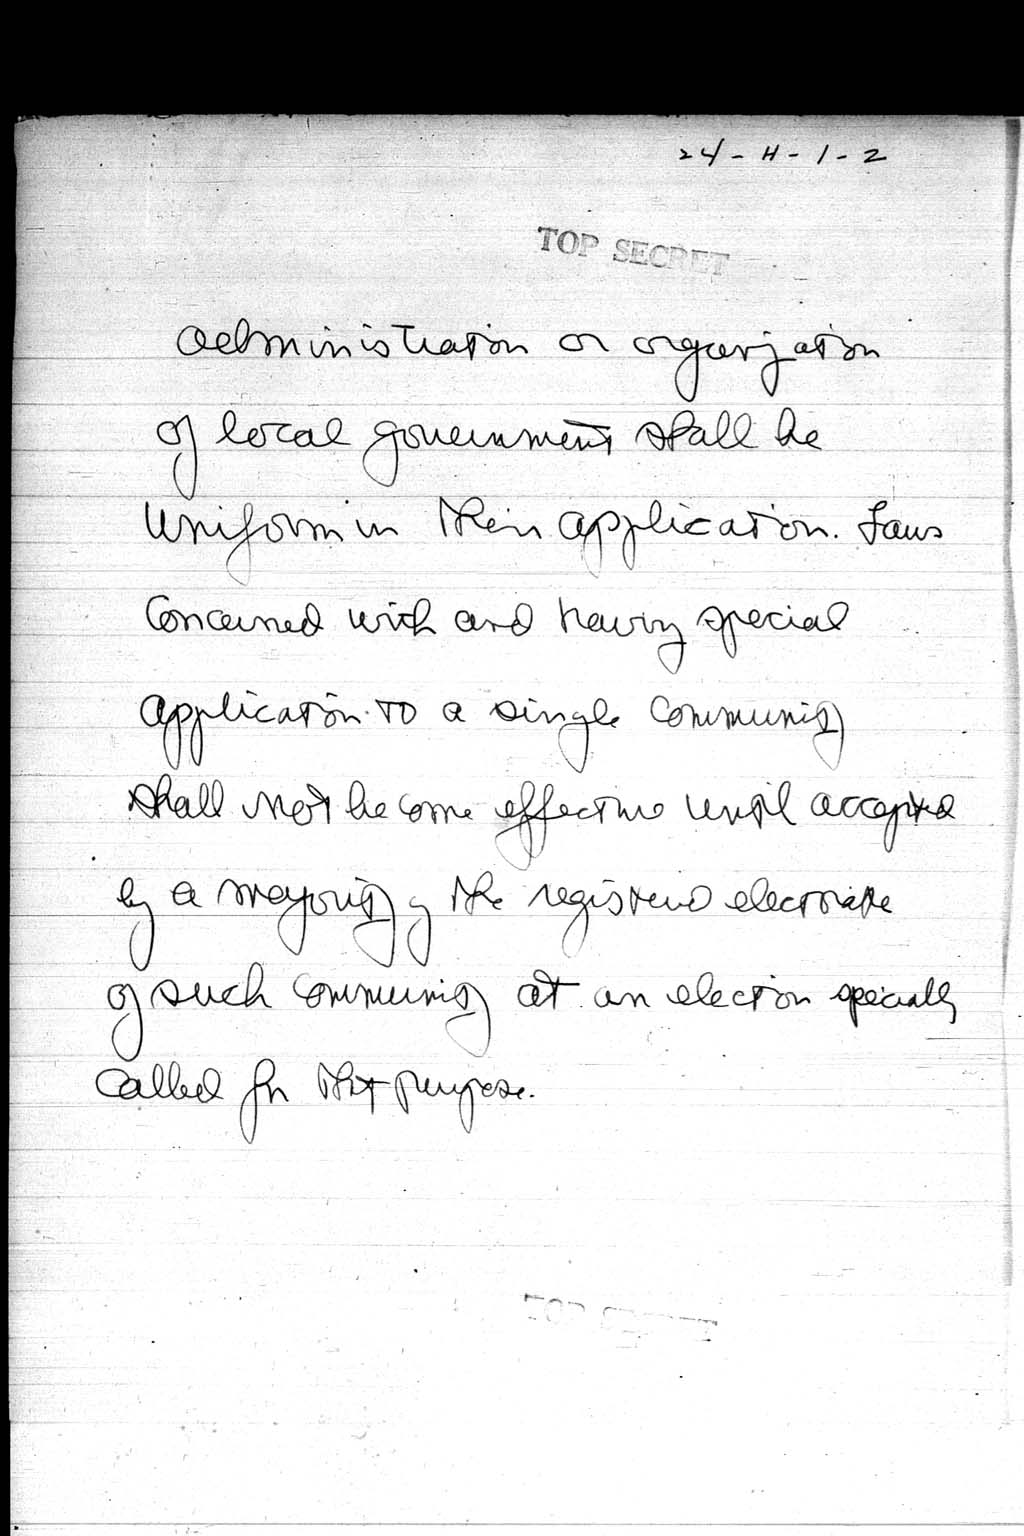 24-H-1-2
TOP SECRET
administration or organization
of local government shall be
uniform in their application. Laws
concerned with and having special
application to a single community
shall not become effective until accepted
by a majority of the registered electorate
of such community at an election specially
called for that purpose.
TOP SECRET